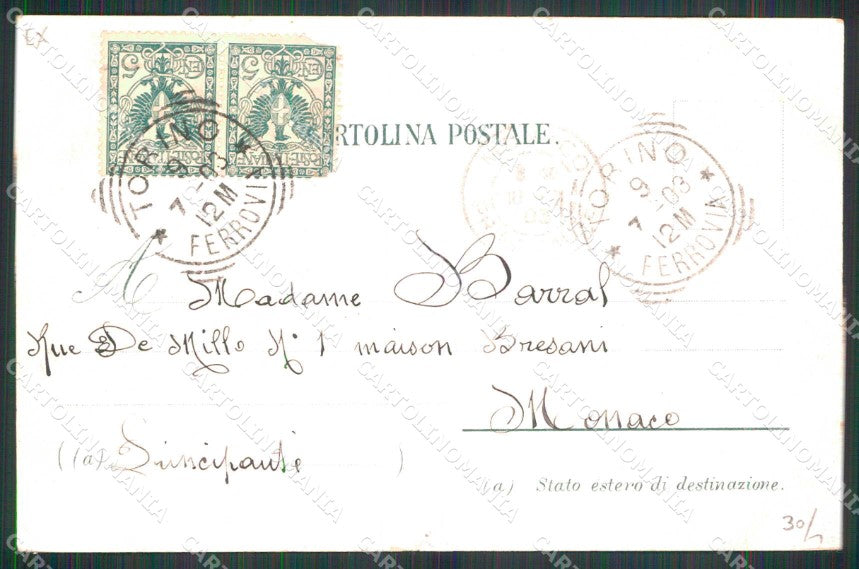 CEN 5 CEN 5
POSTE ITALIANE POSTE ITALIANE
RTOLINA POSTALE.
TORINO
9
7-03
12 M
★ FERROVIA ★
TORINO
9
7-03
12 M
★ FERROVIA ★
A Madame Barral
Rue De Mille N° 1 maison Bresani
Monaco
(a) Principauté
(a) Stato estero di destinazione.
30/
CARTOLINOMANIA